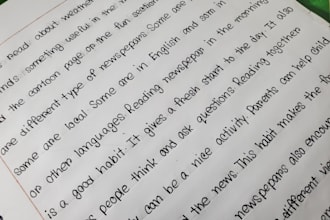 read about weather
something useful in the n
the cartoon page on the fun section
are different type of newspepars. Some are
some are local. Some are in English and som in
or other languages. Reading newspeper in the morning
is a good habit. It gives a fresh start to the day. It also
people think and ask questions. Reading together
can be a nice activity. Parents can help child
the news. This habit makes the f
newspepars also encou
different